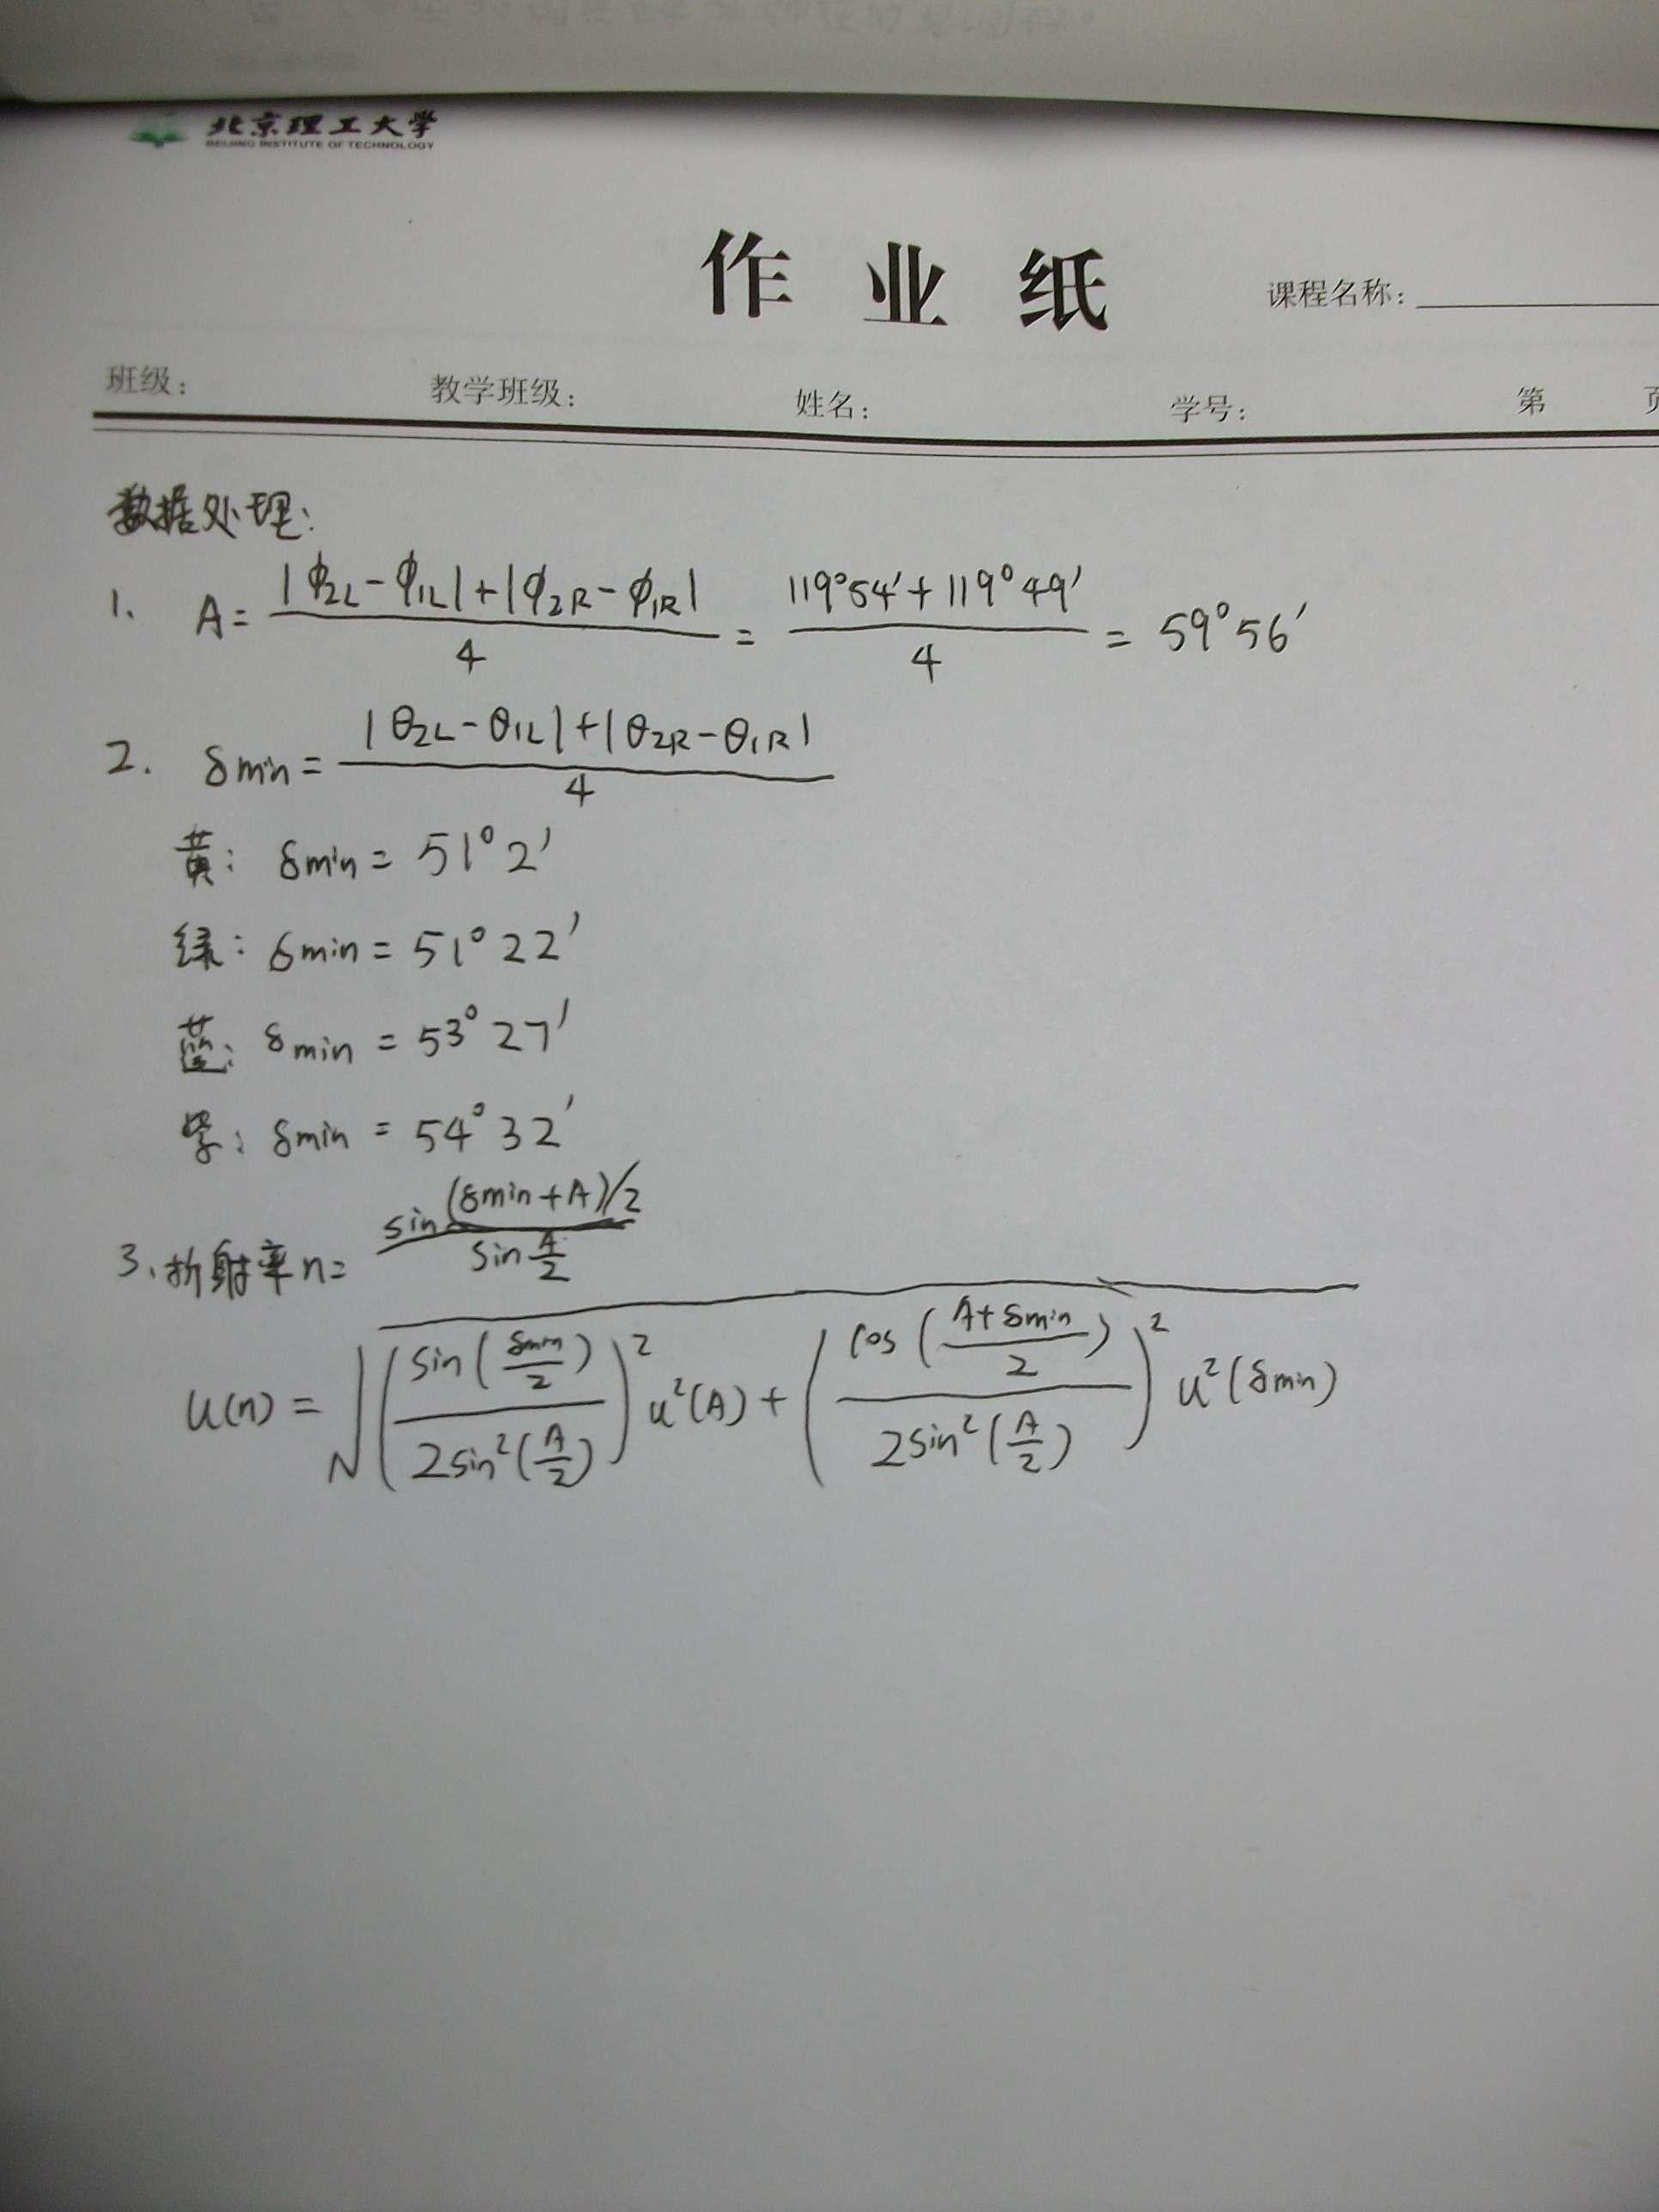 北京理工大学
BEIJING INSTITUTE OF TECHNOLOGY
作业纸
课程名称:
班级: 教学班级: 姓名: 学号: 第 页
数据处理:
1. A = (|ϕ2L - ϕ1L| + |ϕ2R - ϕ1R|) / 4 = (119°54′ + 119°49′) / 4 = 59°56′
2. δmin = (|θ2L - θ1L| + |θ2R - θ1R|) / 4
黄: δmin = 51°2′
绿: δmin = 51°22′
蓝: δmin = 53°27′
紫: δmin = 54°32′
3、折射率n = sin (δmin + A)/2 / sin A/2
u(n) = √((sin(δmin/2) / 2sin²(A/2))² u²(A) + (cos((A+δmin)/2) / 2sin²(A/2))² u²(δmin))